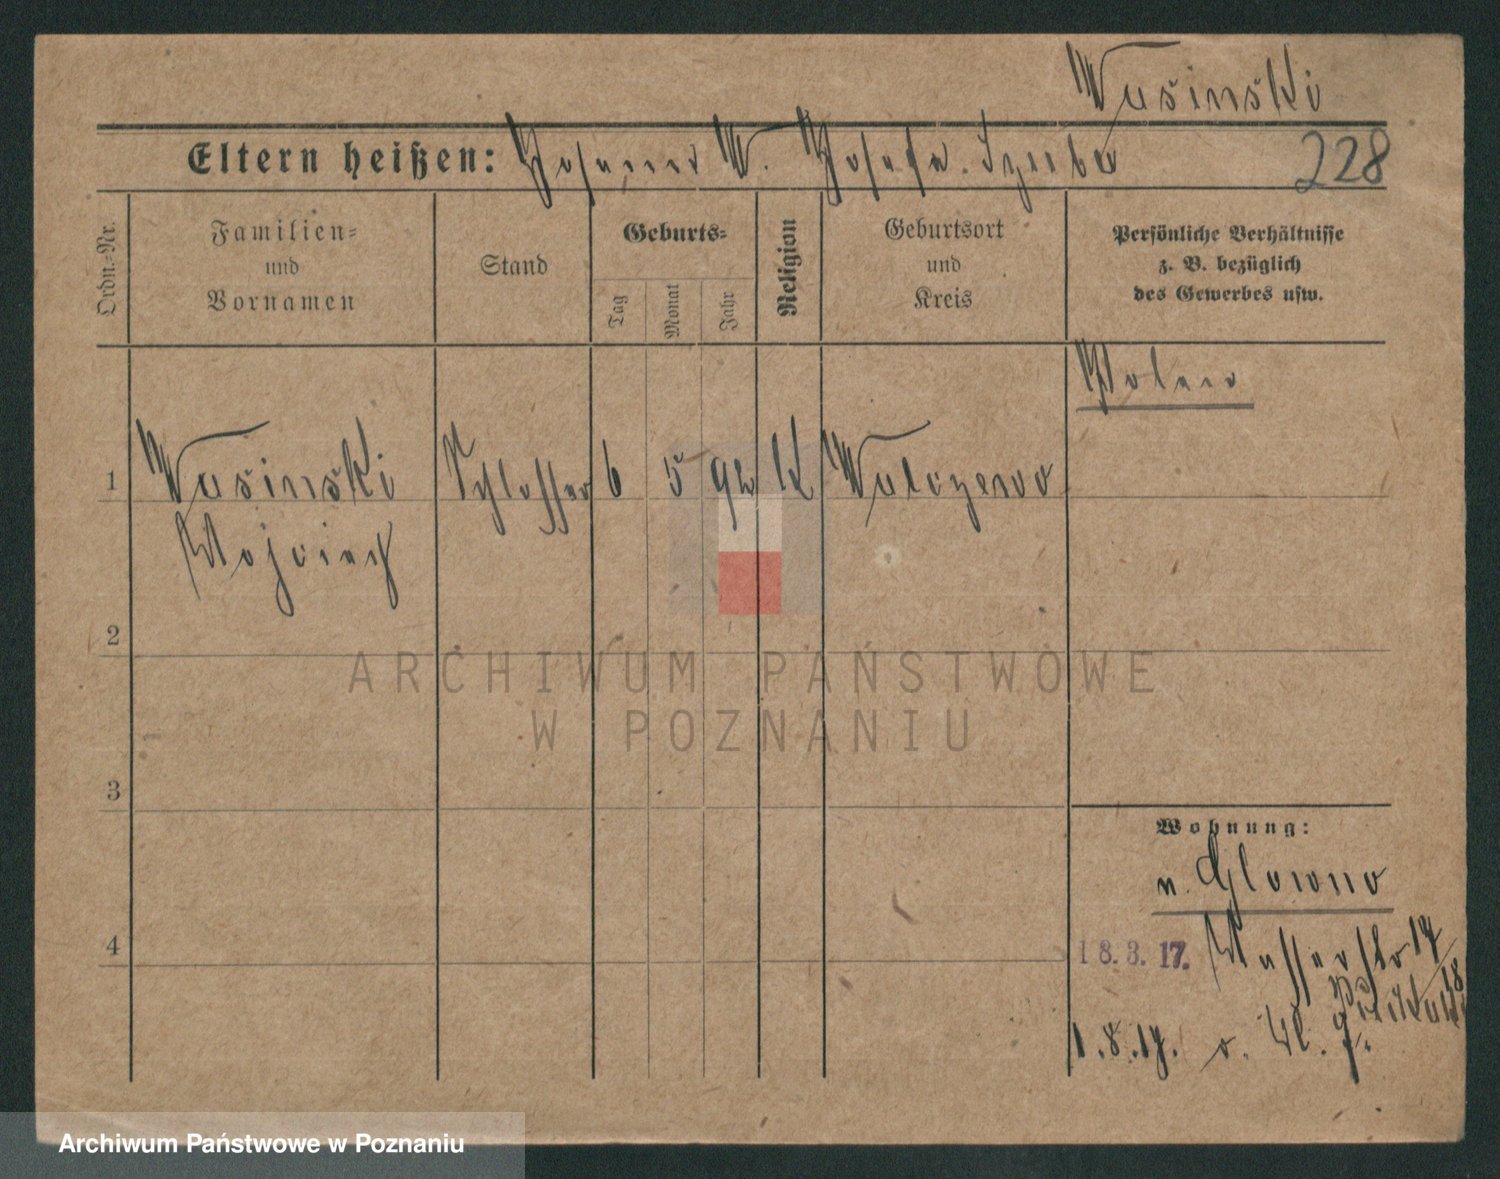 Wusinski
Eltern heißen: W. Josefa.
228
Ordn.-Nr.
Familien=
und
Vornamen
Stand
Geburts=
Tag
Monat
Jahr
Religion
Geburtsort
und
Kreis
Persönliche Verhältnisse
z. B. bezüglich
des Gewerbes usw.
Polen
1
Wusinski
Schlosser
6
5
92
K
Wulczewo
Wojciech
2
ARCHIWUM PAŃSTWOWE
W POZNANIU
3
Wohnung:
n. Glowno
4
18.3.17.
Wasserstr 17
18
1.8.17.
Archiwum Państwowe w Poznaniu